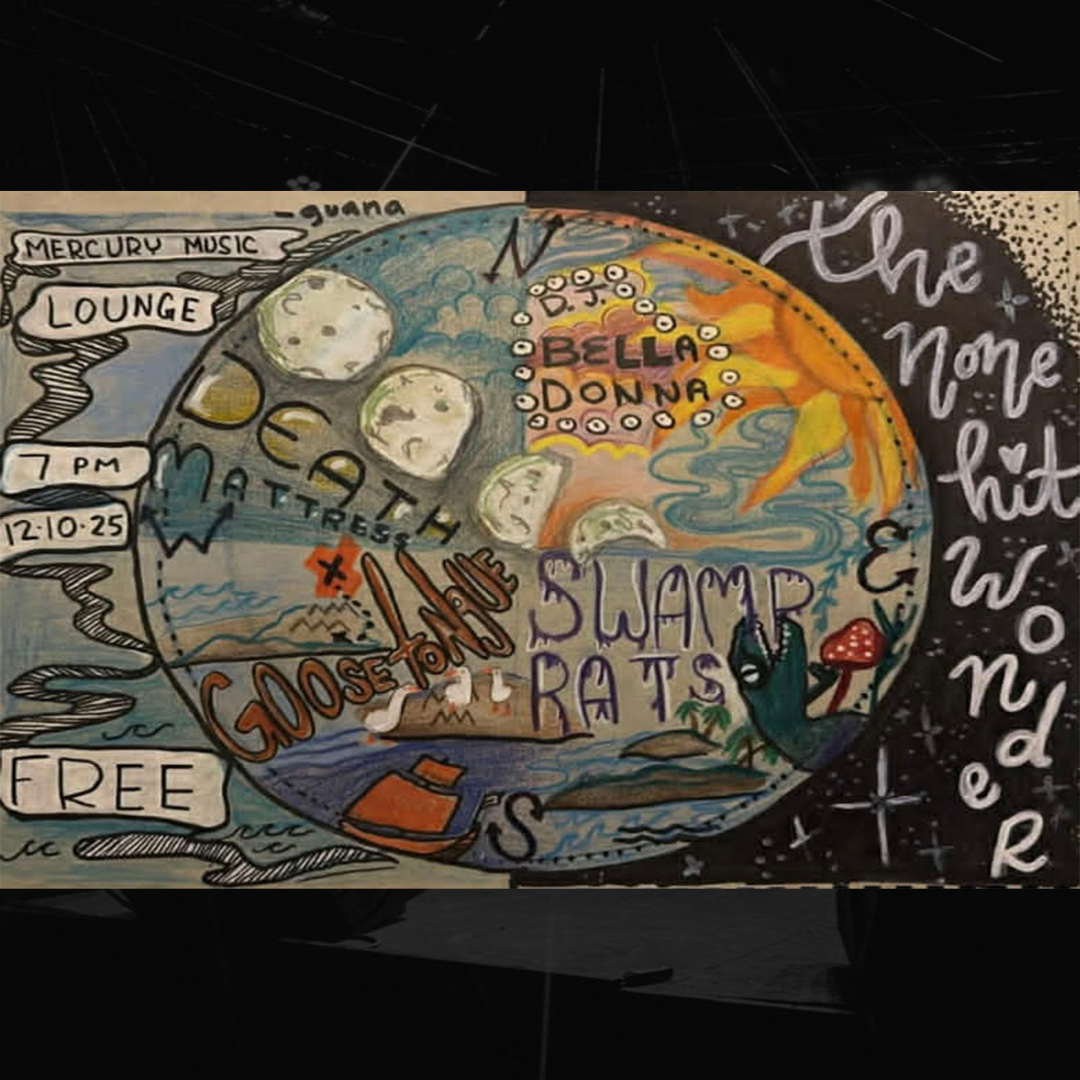 -guana
MERCURY MUSIC
LOUNGE
7 PM
12·10·25
FREE
N
W
E
S
DEATH
MATTRESS
D.J.
BELLA
DONNA
X
GOOSE TONGUE
SWAMP
RATS
the
none
hit
wondeR